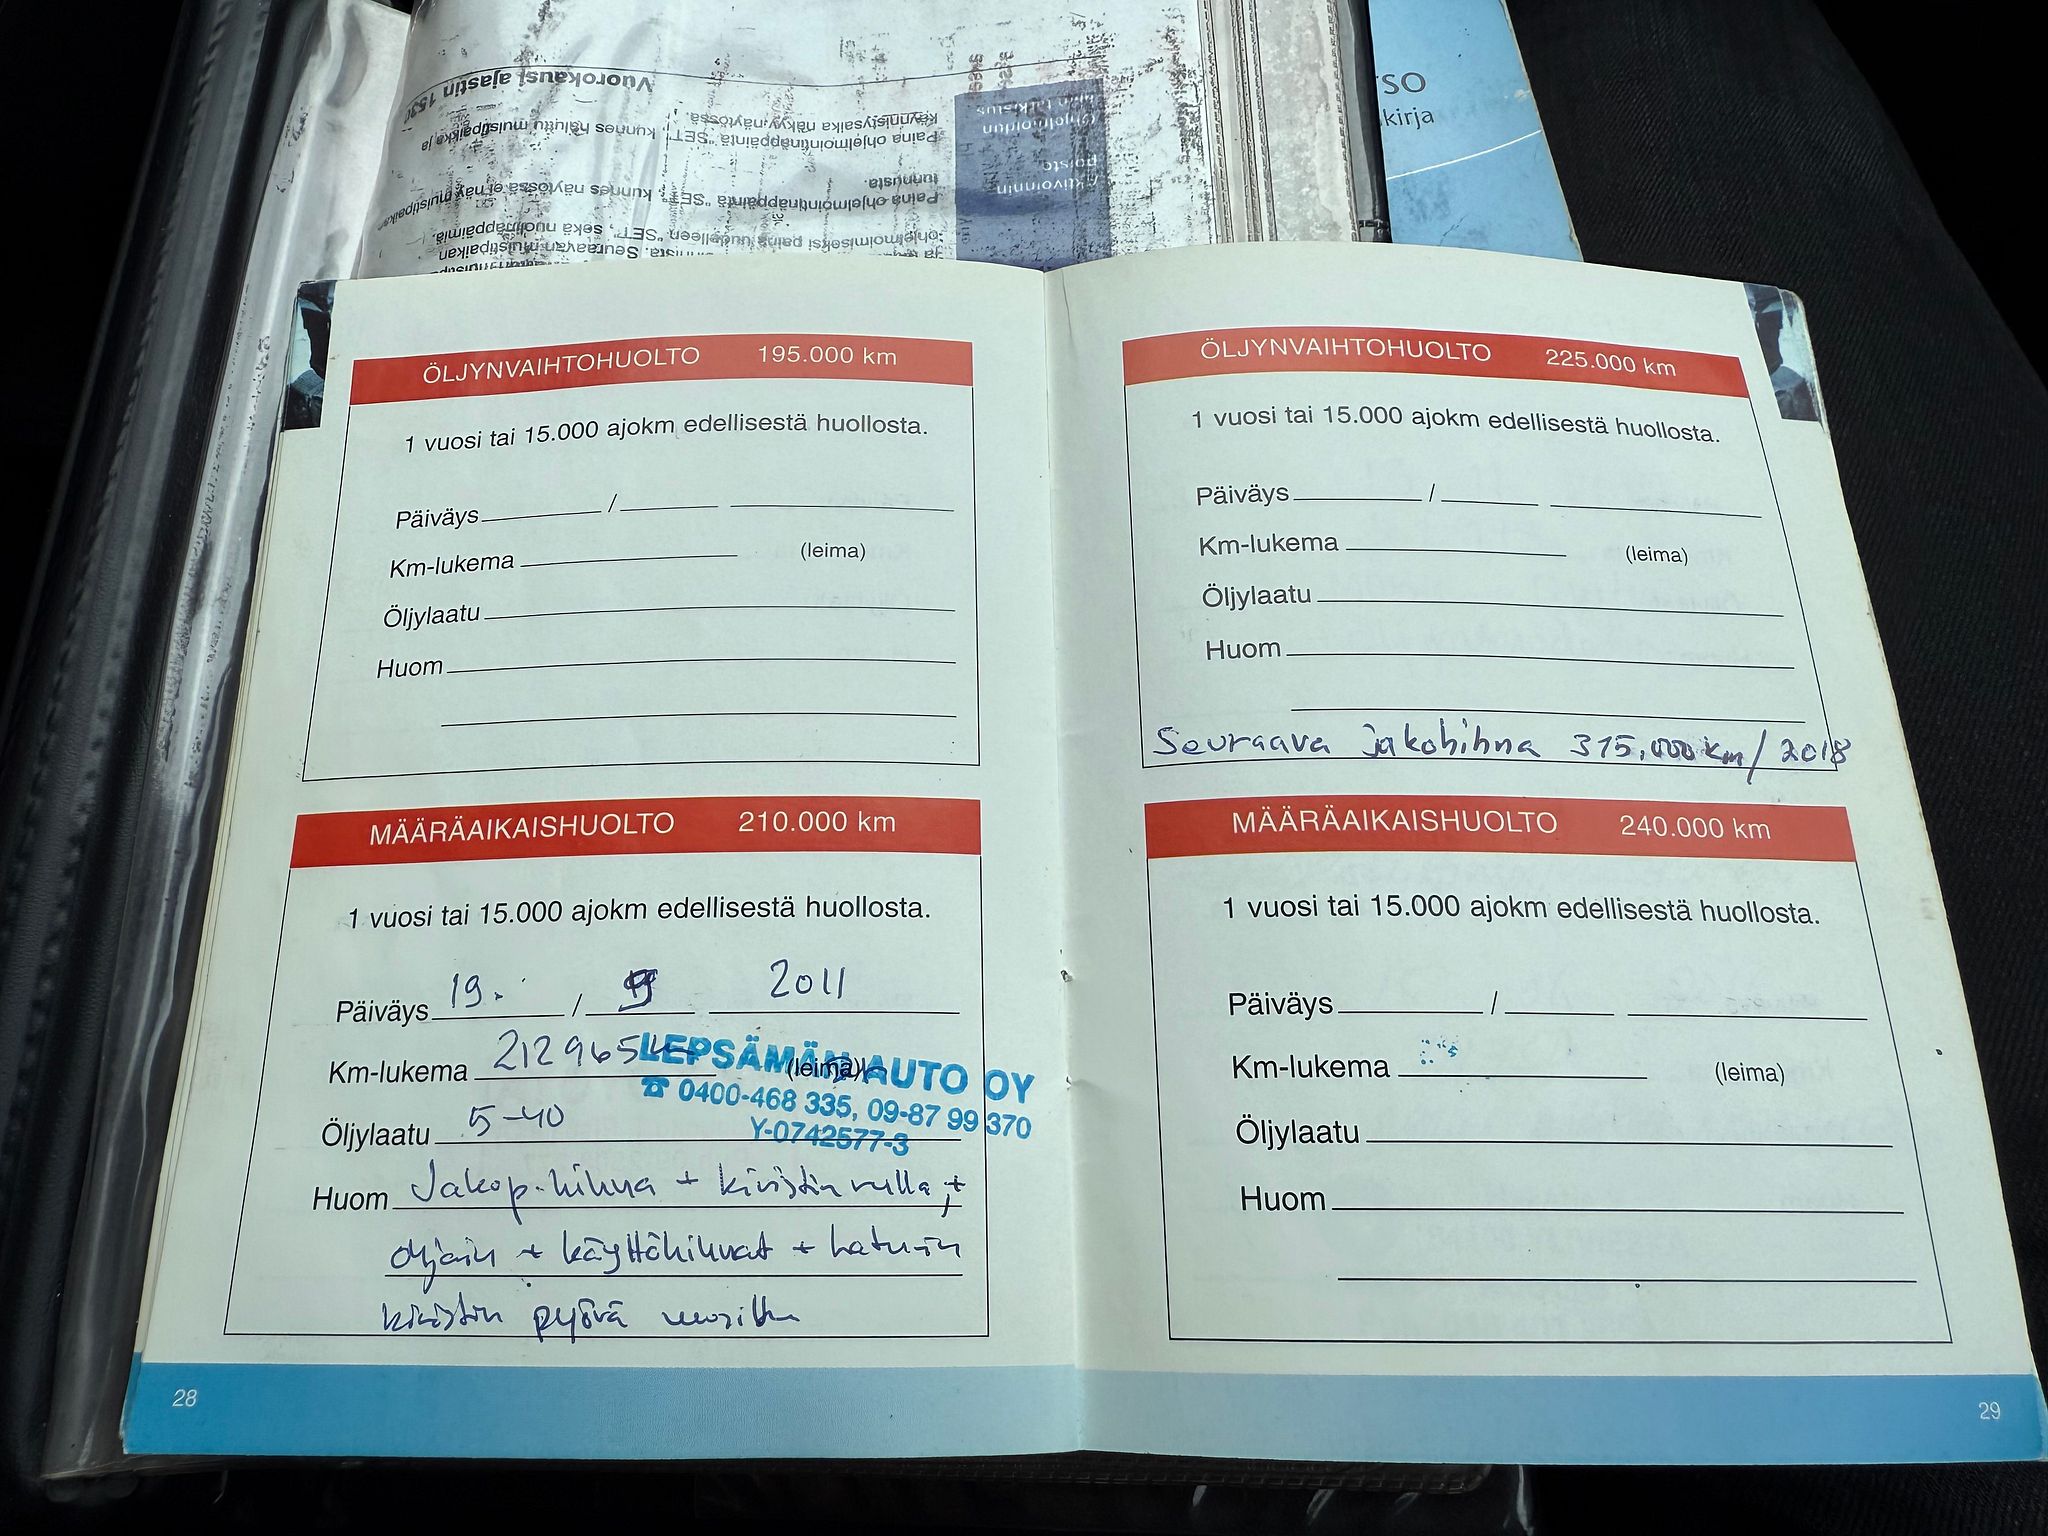 Vuorokausi ajastin 1530
Paina ohjelmointinäppäintä "SET", kunnes haluttu muistipaikka ja
käynnistysaika näkyy näytössä.
Ohjelmoidun
Paina ohjelmointinäppäintä "SET", kunnes näytössä ei näy muistipaikan
tunnusta.
Aktivoinnin
poisto
ohjelmoimiseksi paina uudelleen "SET", sekä nuolinäppäimiä.
Seuraavan muistipaikan
SO
kirja
ÖLJYNVAIHTOHUOLTO 195.000 km
1 vuosi tai 15.000 ajokm edellisestä huollosta.
Päiväys /
Km-lukema (leima)
Öljylaatu
Huom
MÄÄRÄAIKAISHUOLTO 210.000 km
1 vuosi tai 15.000 ajokm edellisestä huollosta.
Päiväys 19. / 9 2011
Km-lukema 212965 (leima)
LEPSÄMÄN AUTO OY
☎ 0400-468 335, 09-87 99 370
Y-0742577-3
Öljylaatu 5-40
Huom Jakop.hihna + kiristin rulla +
ohjain + käyttöhihnat + haturin
kiristin pyörä
28
ÖLJYNVAIHTOHUOLTO 225.000 km
1 vuosi tai 15.000 ajokm edellisestä huollosta.
Päiväys /
Km-lukema (leima)
Öljylaatu
Huom
Seuraava jakohihna 315.000 km / 2018
MÄÄRÄAIKAISHUOLTO 240.000 km
1 vuosi tai 15.000 ajokm edellisestä huollosta.
Päiväys /
Km-lukema (leima)
Öljylaatu
Huom
29